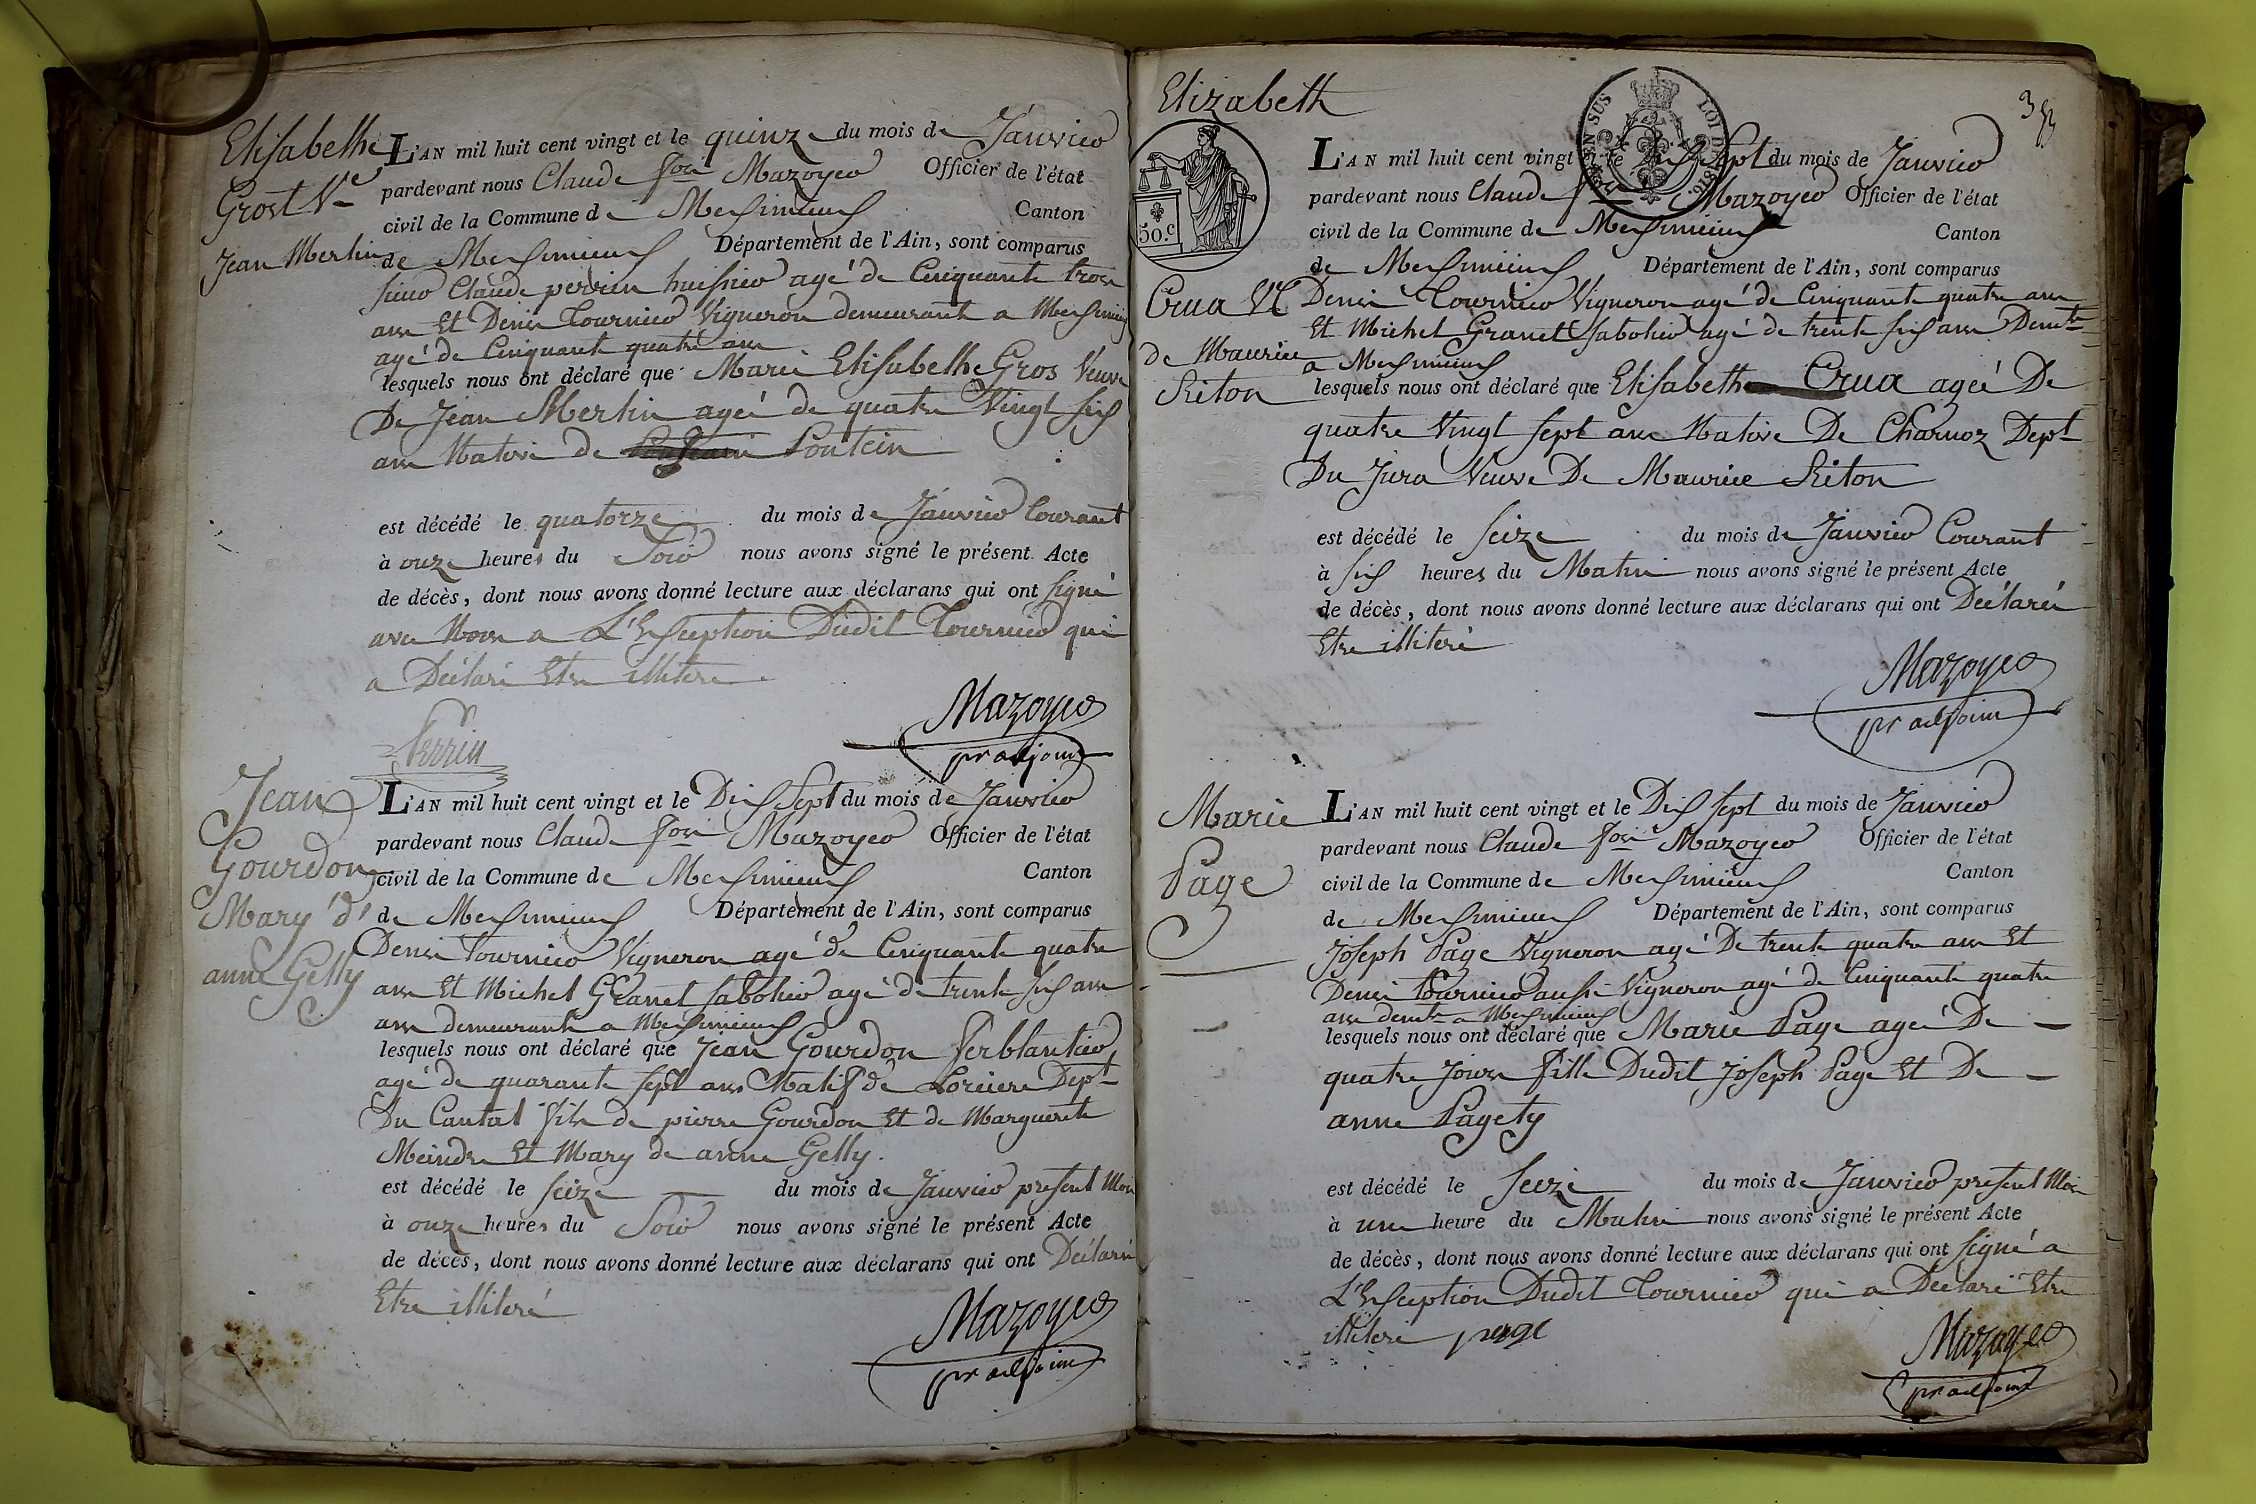 Elisabethe
Grost Ve
Jean Merlin
L'AN mil huit cent vingt et le quinze du mois de Janvier
pardevant nous Claude fois Mazoyer Officier de l'état
civil de la Commune de Meximieux Canton
de Meximieux Département de l'Ain, sont comparus
sieur Claude perrin huissier agé de Cinquante trois
ans Et Denis Tournier Vigneron demeurant a Meximieux
agé de Cinquante quatre ans
lesquels nous ont déclaré que Marie Elisabethe Gros Veuve
De Jean Merlin ageé de quatre Vingt six
ans Native de Loutein
est décédé le quatorze du mois de Janvier Courant
à onze heures du Soir nous avons signé le présent Acte
de décès, dont nous avons donné lecture aux déclarans qui ont signé
avec Nous a L'Exception Dudit Tournier qui
a Déclaré Etre illitere
Perrin
Mazoyer
pr adjoint
Jean
Gourdon
Mary d'
anne Gelly
L'AN mil huit cent vingt et le Dix Sept du mois de Janvier
pardevant nous Claude fois Mazoyer Officier de l'état
civil de la Commune de Meximieux Canton
de Meximieux Département de l'Ain, sont comparus
Denis Tournier Vigneron agé de Cinquante quatre
ans Et Michel Granet sabotier agé de trente six ans
ans demeurants a Meximieux
lesquels nous ont déclaré que Jean Gourdon ferblantier
agé de quarante sept ans Natif de Lorciere Dept
Du Cantal fils de pierre Gourdon Et de Marguerite
Meindre Et Mary de anne Gelly.
est décédé le seize du mois de Janvier present Mois
à onze heures du Soir nous avons signé le présent Acte
de décès, dont nous avons donné lecture aux déclarans qui ont Déclaré
Etre illiteré
Mazoyer
pr adjoint
353
Elizabeth
50.c
TIMB. EN SUS
LOI DE 1816.
Crua Ve
de Maurice
Riton
L'AN mil huit cent vingt et le Dix Sept du mois de Janvier
pardevant nous Claude fois Mazoyer Officier de l'état
civil de la Commune de Meximieux Canton
de Meximieux Département de l'Ain, sont comparus
Denis Tournier Vigneron agé de Cinquante quatre ans
Et Michel Granet Sabotier agé de trente six ans Demts
a Meximieux
lesquels nous ont déclaré que Elisabeth Crua ageé De
quatre Vingt sept ans Native De Charnoz Dept
Du Jura Veuve De Maurice Riton
est décédé le seize du mois de Janvier Courant
à six heures du Matin nous avons signé le présent Acte
de décès, dont nous avons donné lecture aux déclarans qui ont Déclaré
Etre illiteré
Mazoyer
pr adjoint
Marie
Page
L'AN mil huit cent vingt et le Dix sept du mois de Janvier
pardevant nous Claude fois Mazoyer Officier de l'état
civil de la Commune de Meximieux Canton
de Meximieux Département de l'Ain, sont comparus
Joseph Page Vigneron agé De trente quatre ans Et
Denis Tournier aussi Vigneron agé de Cinquante quatre
ans demts a Meximieux
lesquels nous ont déclaré que Marie Page ageé De
quatre Jours fille Dudit Joseph Page Et De
anne Pagety
est décédé le seize du mois de Janvier present Mois
à une heure du Matin nous avons signé le présent Acte
de décès, dont nous avons donné lecture aux déclarans qui ont signé a
L'Exception Dudit Tournier qui a Declaré Etre
illiteré page
Mazoyer
pr adjoint